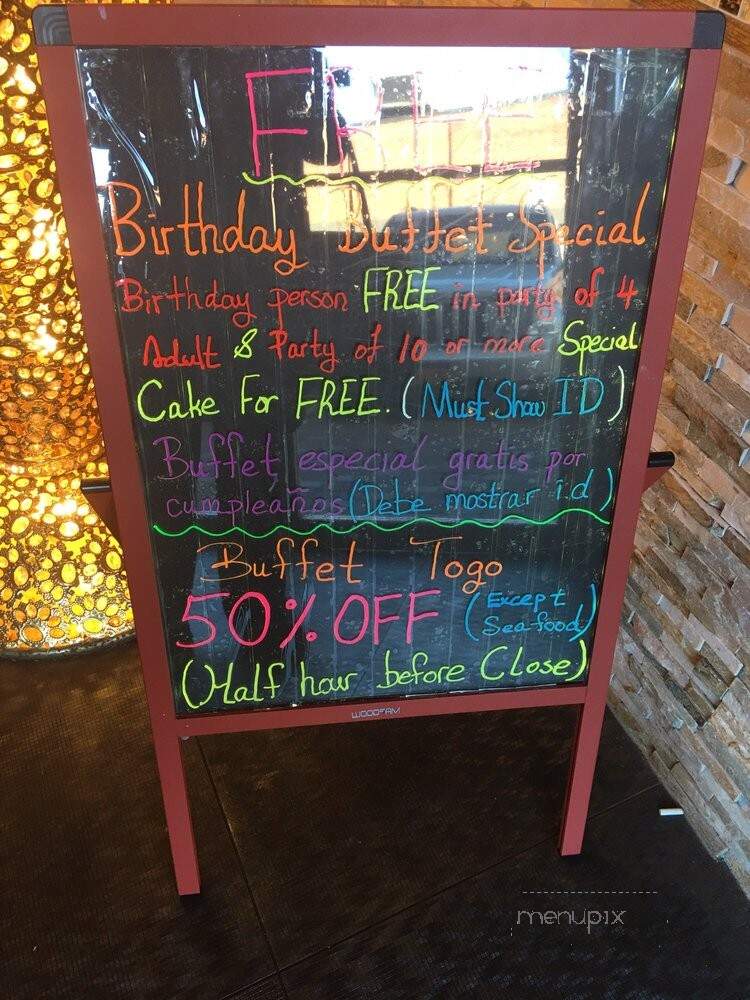 FREE
Birthday Buffet Special
Birthday person FREE in party of 4
Adult & Party of 10 or more Special
Cake For FREE. (Must Show ID)
Buffet especial gratis por
cumpleaños (Debe mostrar i.d)
Buffet Togo
50% OFF (Except
Seafood)
(Half hour before Close)
WOODSAM
menupix